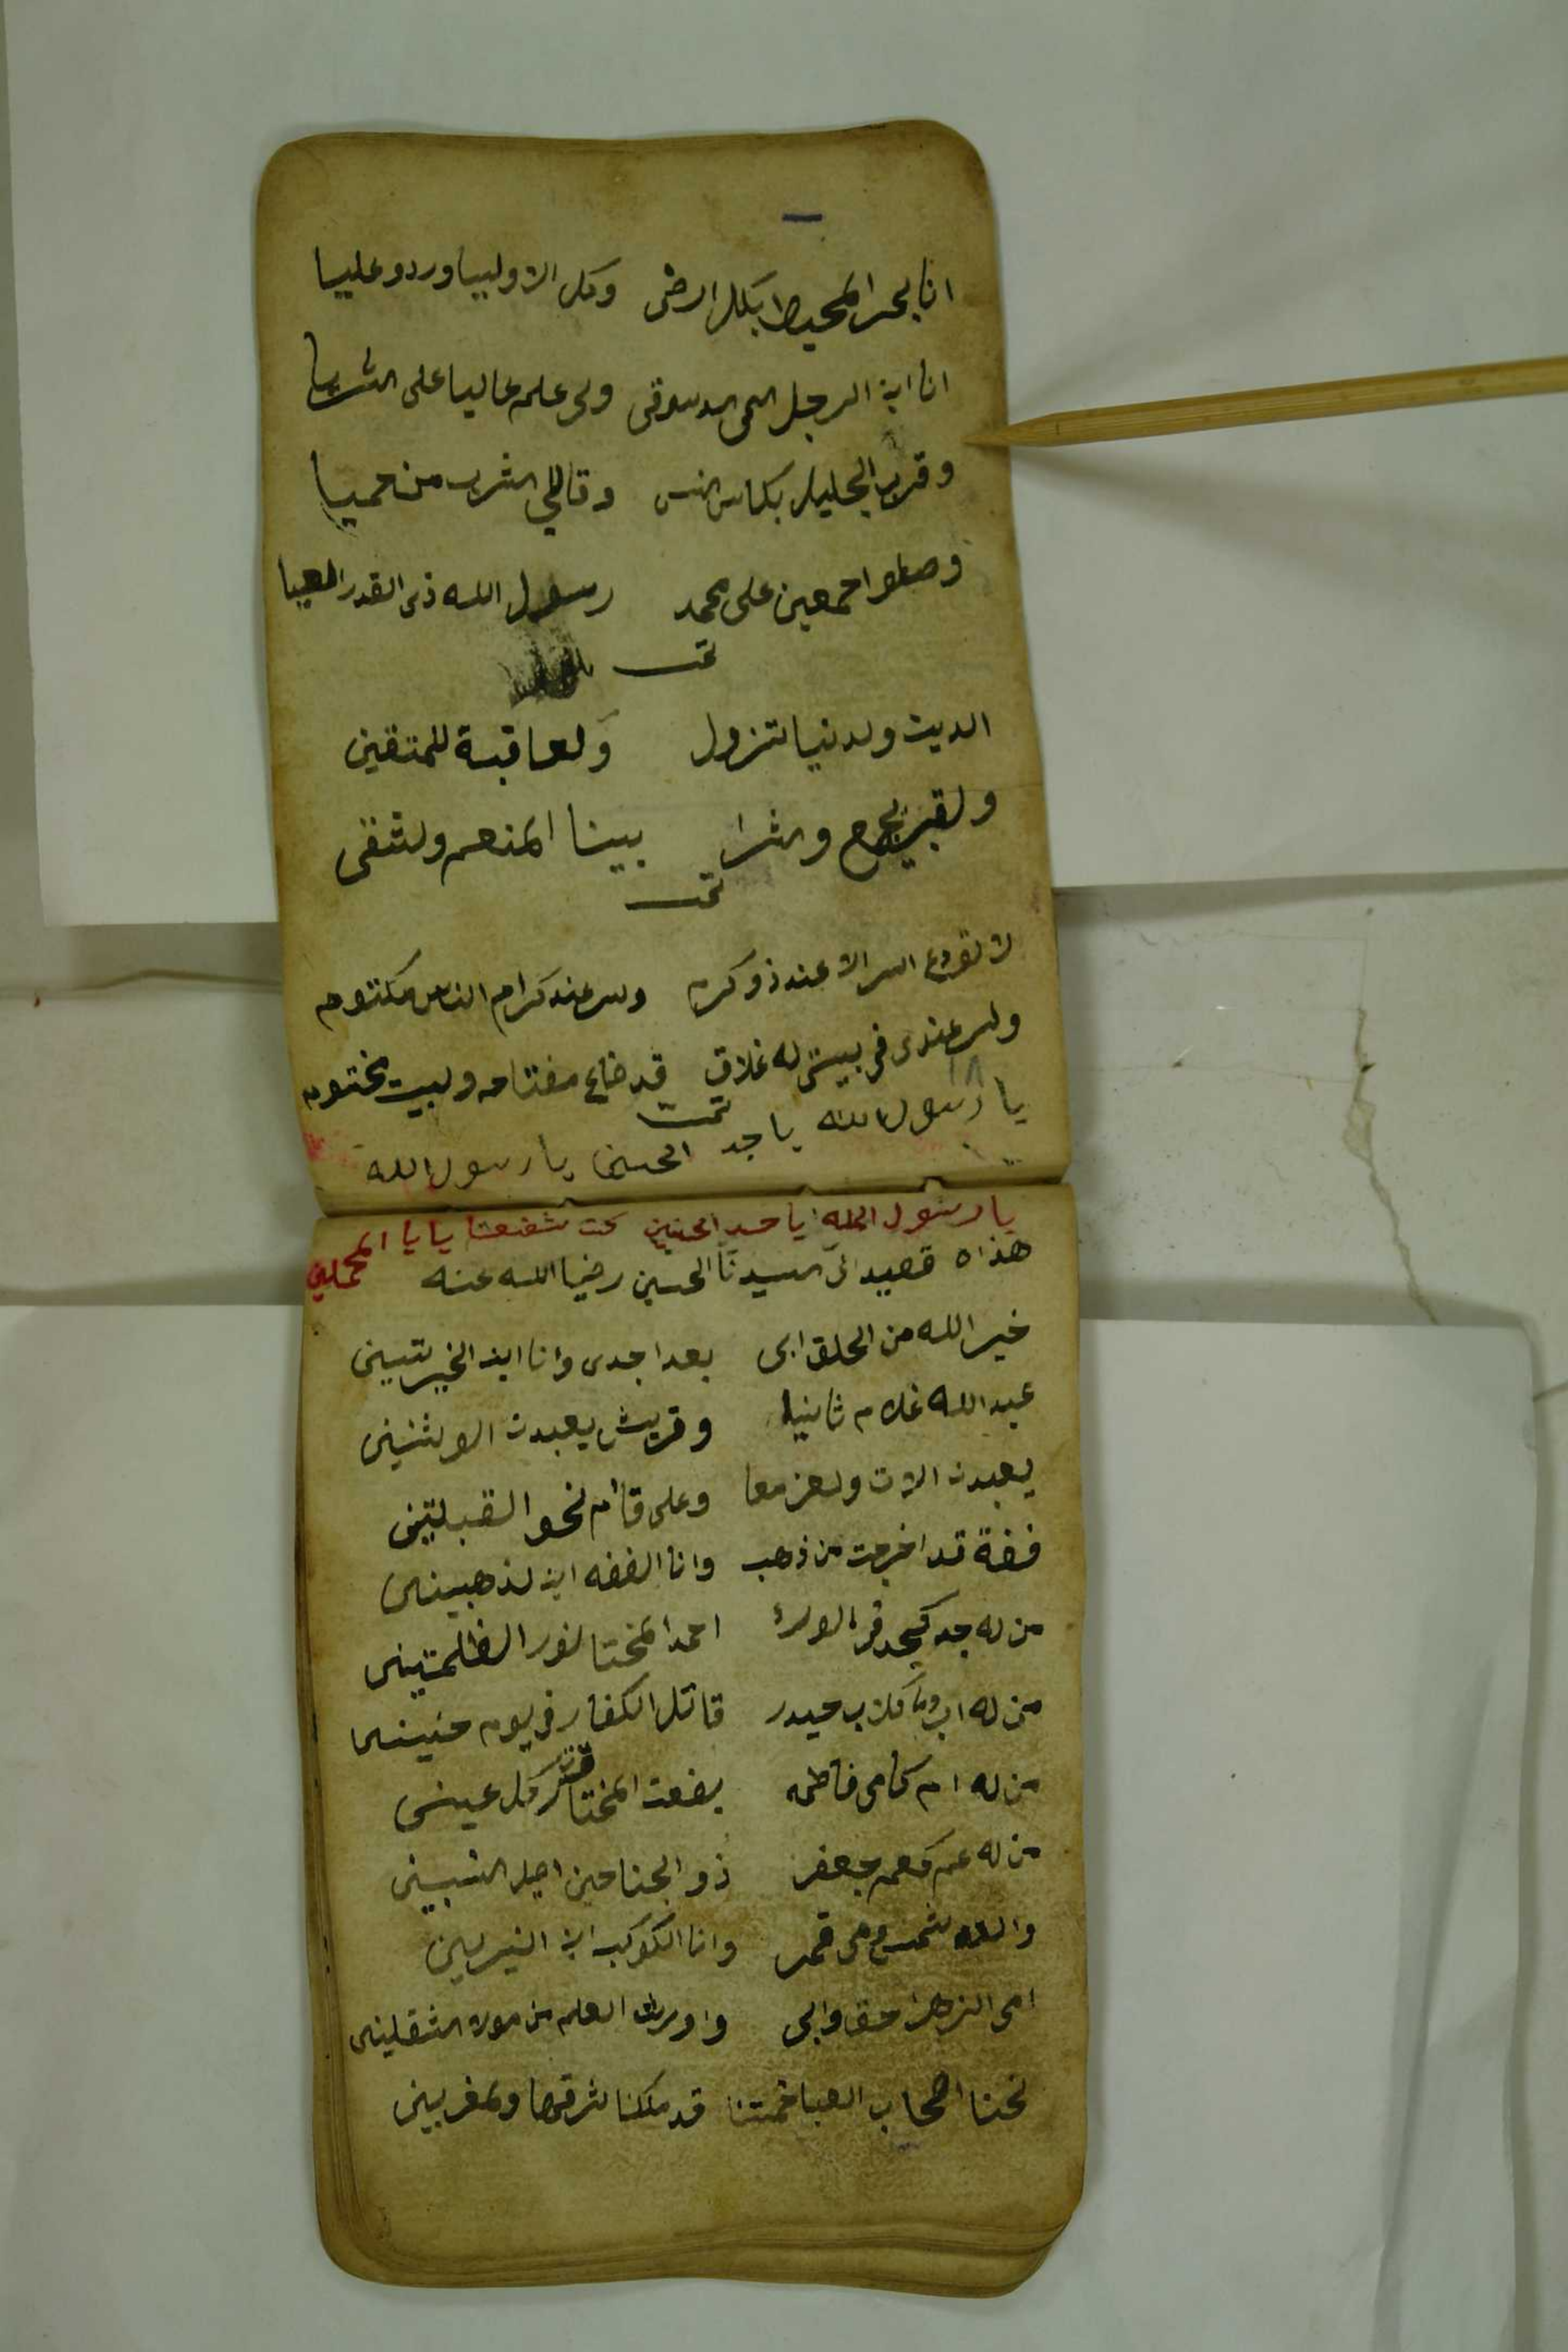 انا بحر المحيط بكل ارض وكل الاوليبا وردو عليبا
انا ابن الرجل اسمى الدسوقى ولى علم عاليا على الثريا
وقرب الجليل بكاس انس وقاللي اشرب من حميا
وصلوا اجمعين على محمد رسول الله ذى القدر العيا
تمت
الدين ولدنيا تزول ولعاقبة للمتقين
ولقبر يجمع والثرا بينا المنعم ولشقى
تمت
لا تودع السر الا عند ذو كرم ولسر عند كرام الناس مكتوم
ولسر عندى فى بيتى له غلاق قد ضاع مفتاحه ولبيت مختوم
تمت
يا رسول الله يا جد الحسين يا رسول الله
يا رسول الله يا جد الحسنين كن شفعنا يا يا المحملين
هذاه قصيد الى السيدنا الحسين رضيا الله عنه
خير الله من الخلق ابى بعدا جدى وانا ابن الخيرتين
عبد الله غلام ثانيا وقريش يعبدن الوثنين
يعبدن الات ولعز معا وعلى قائم نحو القبلتين
فضة قد اخرجت من ذهب وانا الفضه ابن لذهبين
من له جد كجد فى الورئ احمد المختا لنور الظلمتين
من له اب وما كلاب حيدر قاتل الكفار فى يوم حنين
من له ام كامى فاطمه بضعت المختار قرت كل عين
من له عم كعم جعفر ذو الجناحين اصل النسبين
والده شمس وامى قمر وانا الكوكب ابن النيرين
امى الزهرا حقا وابى واورث العلم من مولا الثقلين
نحنا اصحاب العبا خمتنا قد ملكنا شرقها ولمغربين